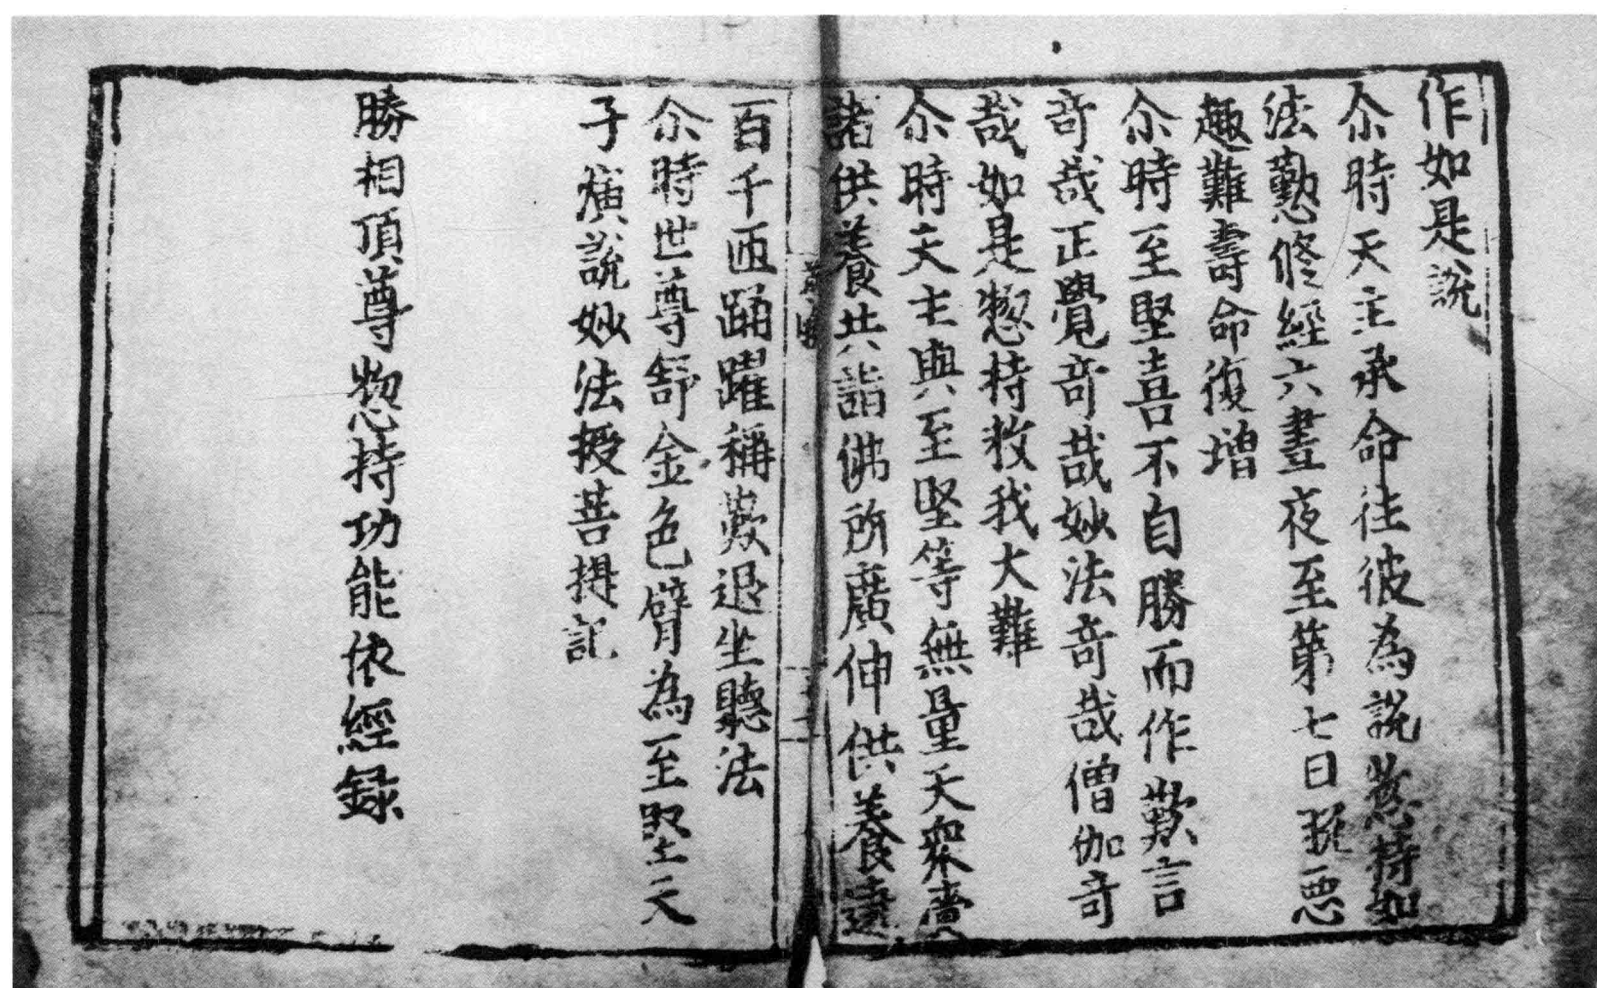 作如是說
尒時天主承命往彼為說惣持如
法懃修經六晝夜至第七日捝惡
趣難壽命復增
尒時至堅喜不自勝而作歎言
竒哉正覺竒哉妙法竒哉僧伽竒
哉如是惣持救我大難
尒時天主與至堅等無量天衆賷
諸供養共詣佛所廣伸供養遶
百千匝踊躍稱歎退坐聽法
尒時世尊舒金色臂為至堅天
子演說妙法授菩提記
勝相頂尊惣持功能依經録